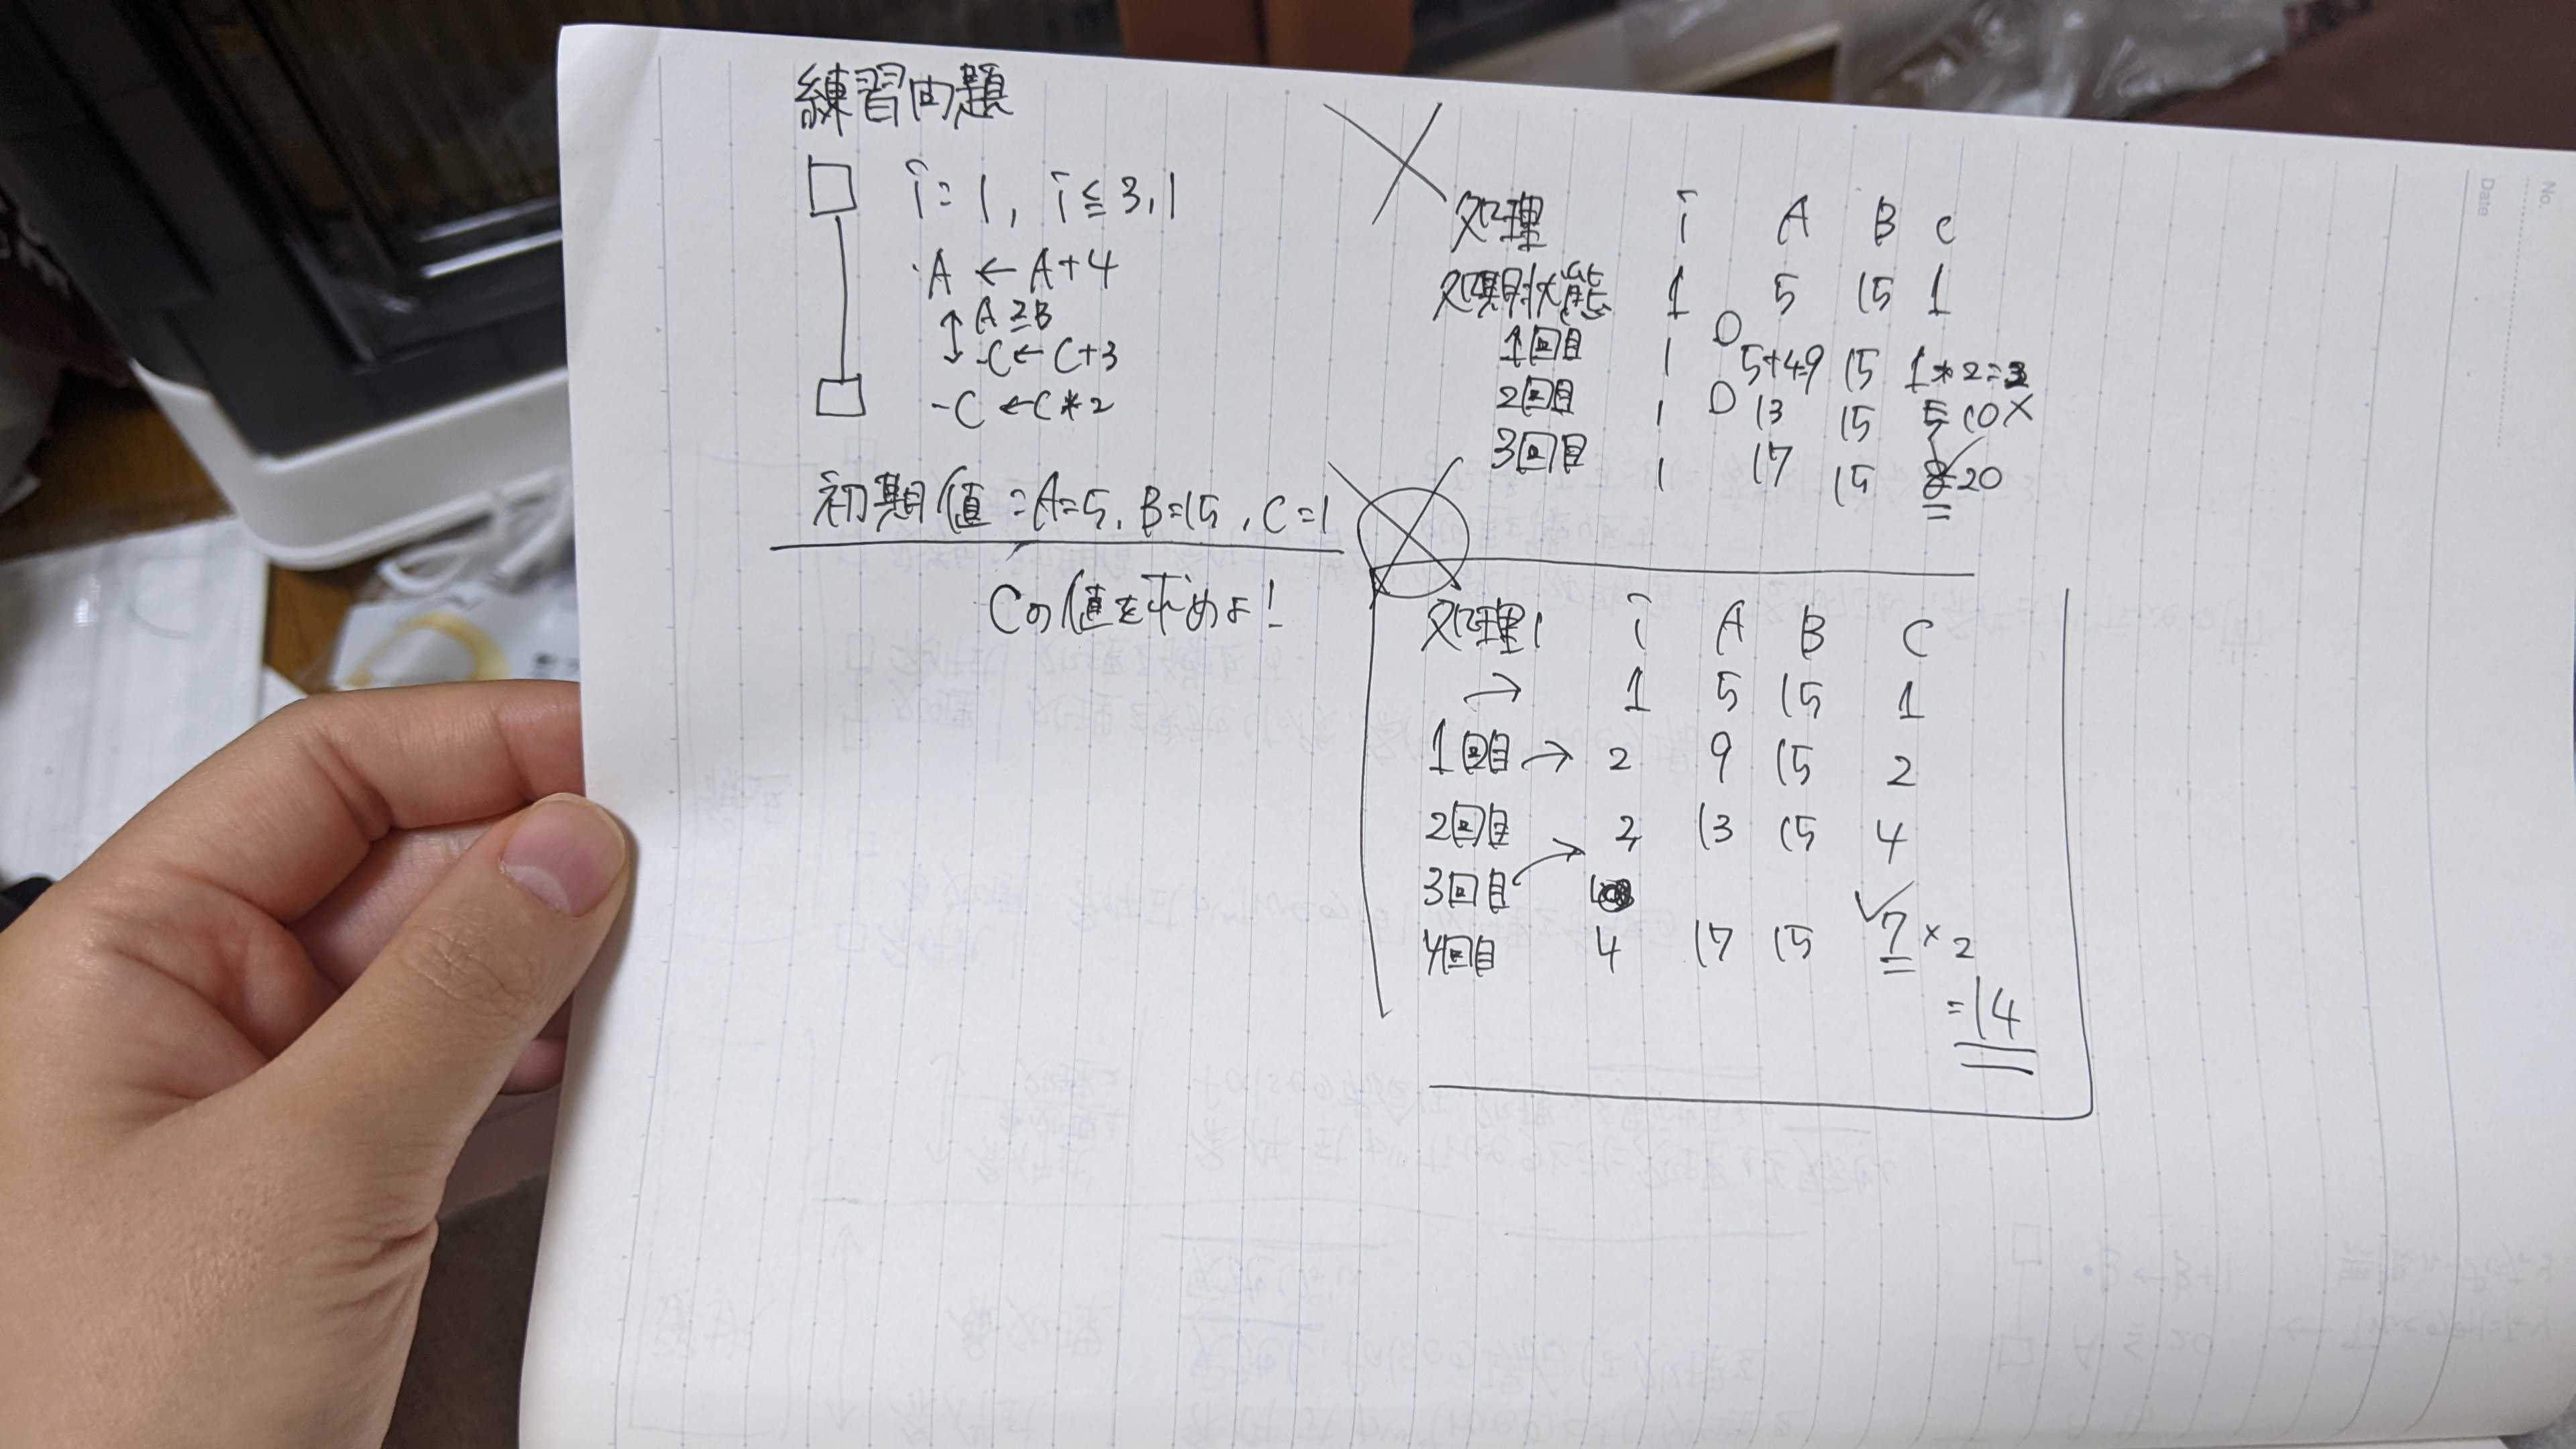 練習問題
i=1, i≦3,1
・A ← A+4
↕ A≧B
-C ← C+3
-C ← C*2
初期値=A=5, B=15, C=1
Cの値を求めよ!
処理 i A B C
処期状態 1 5 15 1
1回目 1 5+4=9 15 1*2=2
2回目 1 13 15 5 10×
3回目 1 17 15 8 20
処理 i A B C
→ 1 5 15 1
1回目 → 2 9 15 2
2回目 2 13 15 4
3回目
4回目 4 17 15 7×2
=14
No.
Date